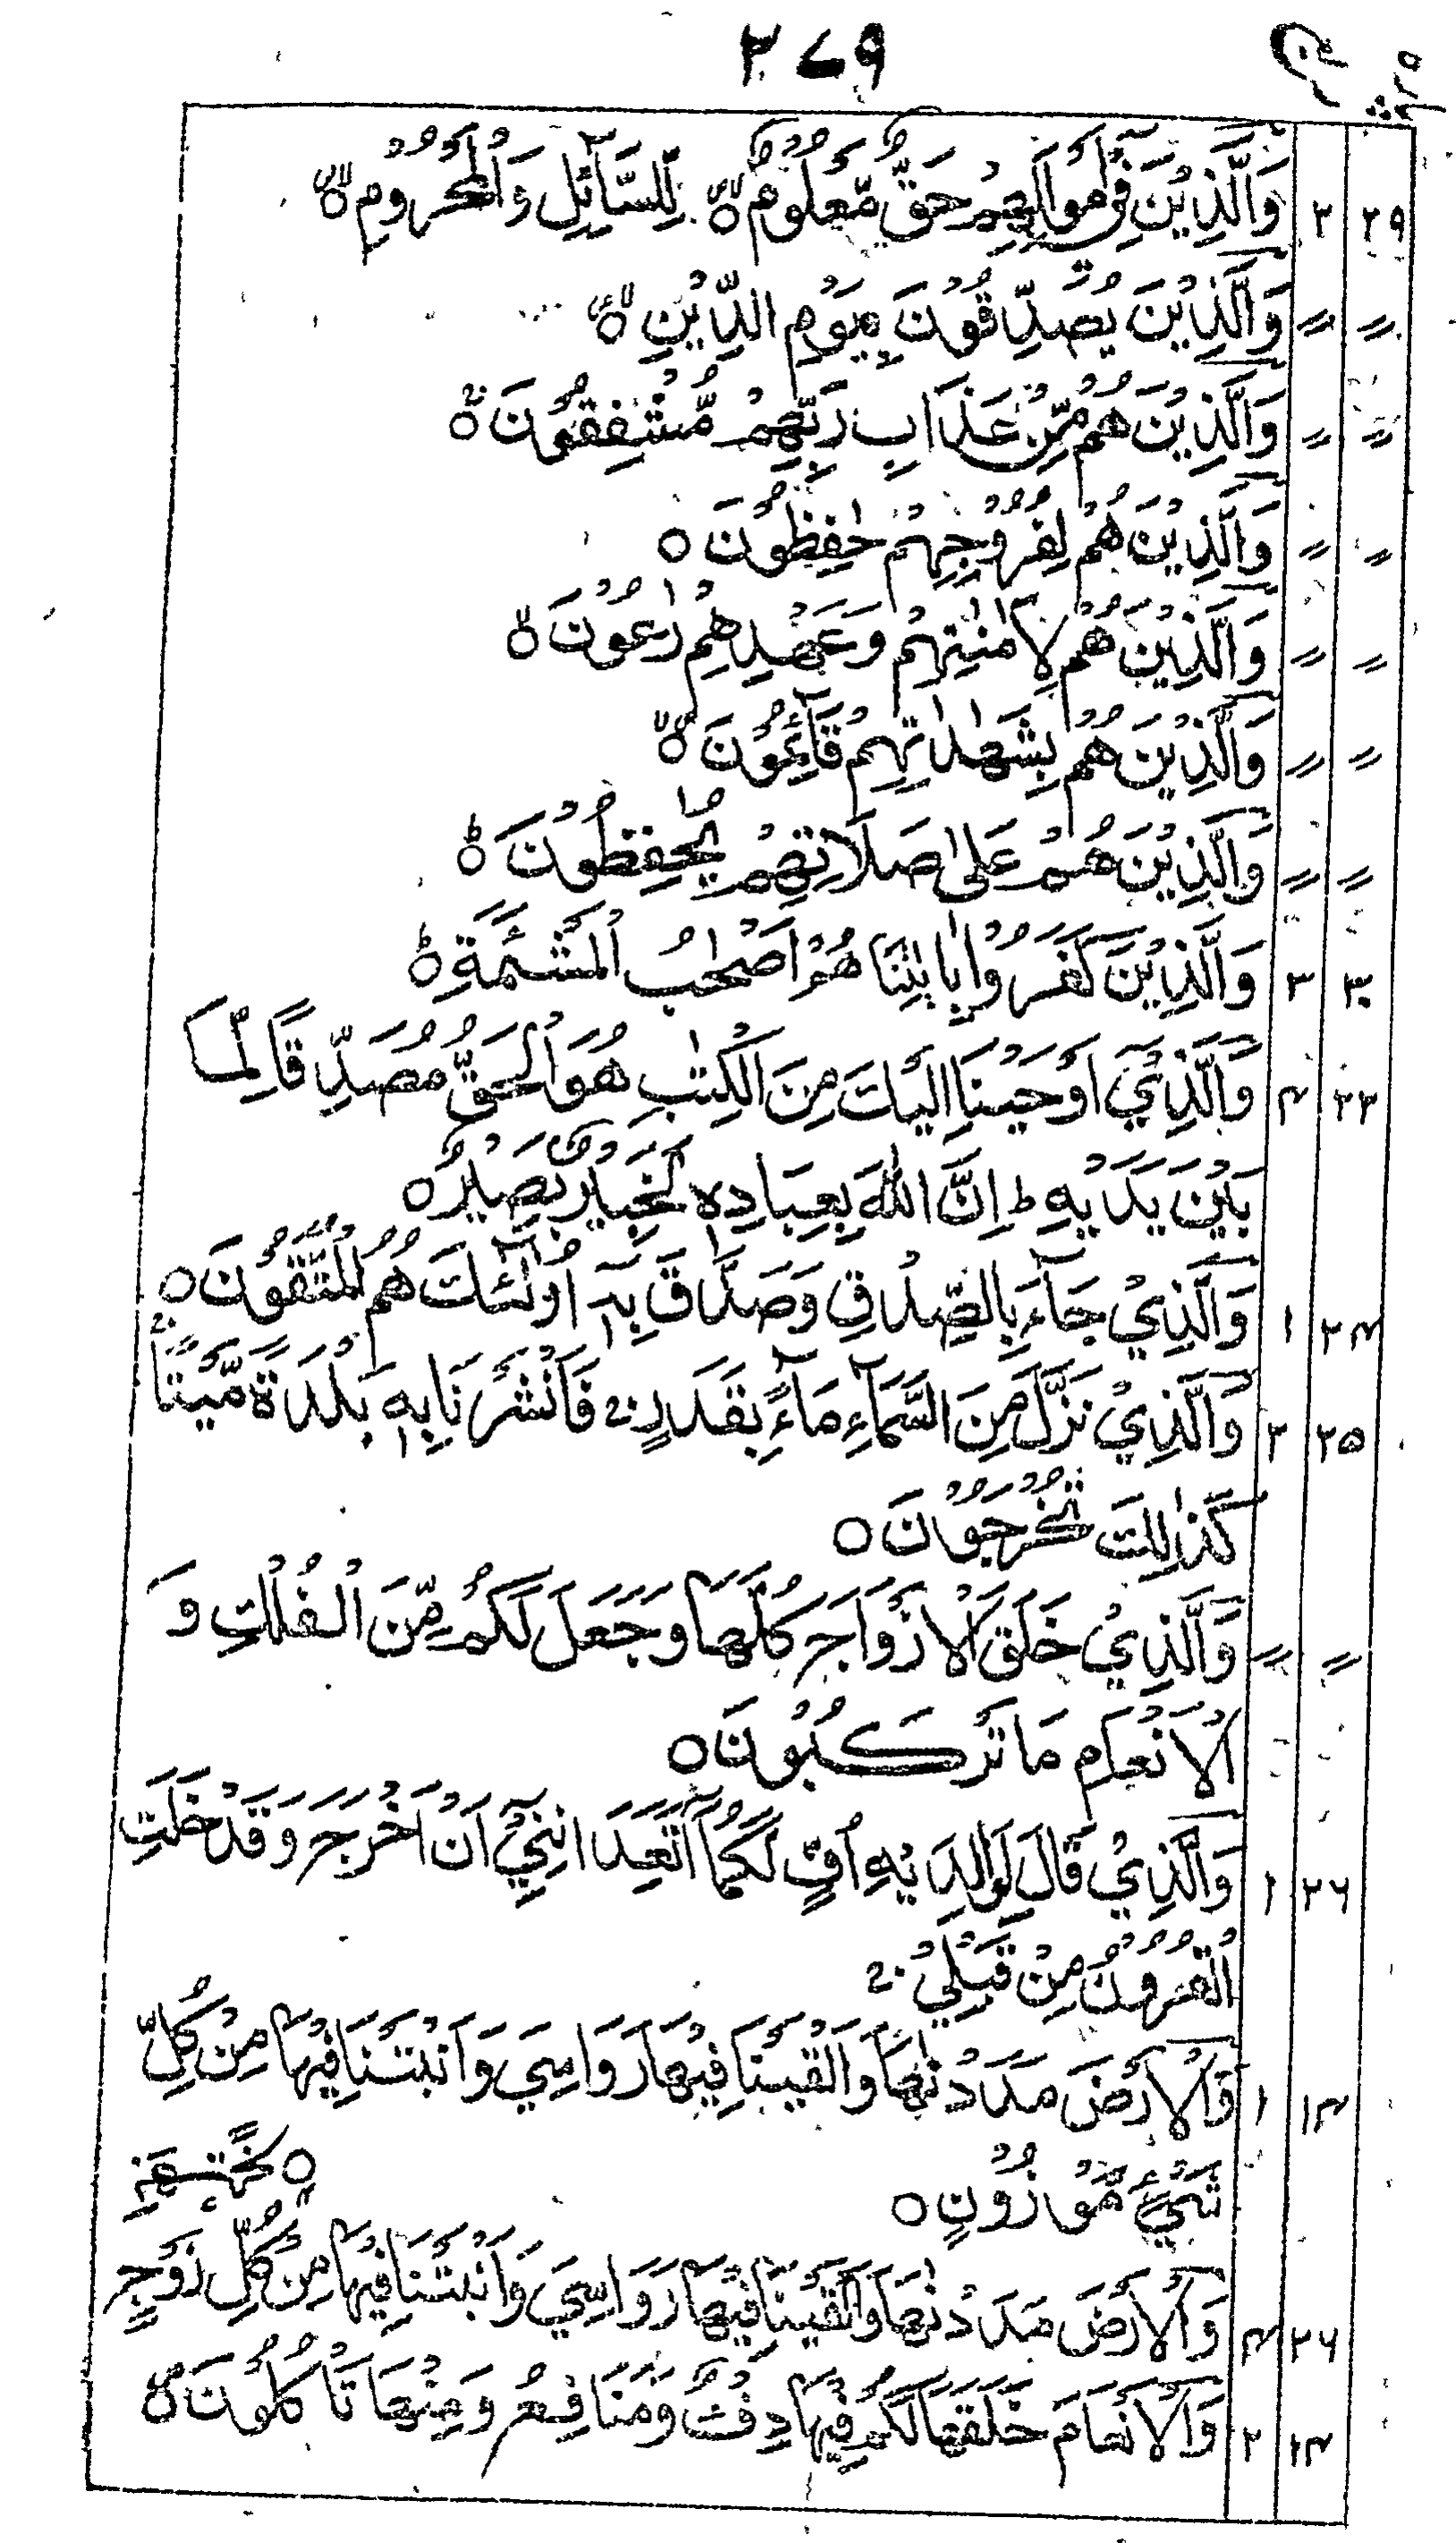 ۲۷۹
۲۹ ۲ وَالَّذِيْنَ فِيْٓ اَمْوَالِهِمْ حَقٌّ مَّعْلُوْمٌ ۝ لِّلسَّآئِلِ وَالْمَحْرُوْمِ ۝
〃 〃 وَالَّذِيْنَ يُصَدِّقُوْنَ بِيَوْمِ الدِّيْنِ ۝
〃 〃 وَالَّذِيْنَ هُمْ مِّنْ عَذَابِ رَبِّهِمْ مُّشْفِقُوْنَ ۝
〃 〃 وَالَّذِيْنَ هُمْ لِفُرُوْجِهِمْ حٰفِظُوْنَ ۝
〃 〃 وَالَّذِيْنَ هُمْ لِاَمٰنٰتِهِمْ وَعَهْدِهِمْ رٰعُوْنَ ۝
〃 〃 وَالَّذِيْنَ هُمْ بِشَهٰدٰتِهِمْ قَآئِمُوْنَ ۝
〃 〃 وَالَّذِيْنَ هُمْ عَلٰى صَلَاتِهِمْ يُحٰفِظُوْنَ ۝
۳۰ ۳ وَالَّذِيْنَ كَفَرُوْا بِاٰيٰتِنَا هُمْ اَصْحٰبُ الْمَشْئَمَةِ ۝
۲۲ ۴ وَالَّذِيْٓ اَوْحَيْنَا اِلَيْكَ مِنَ الْكِتٰبِ هُوَ الْحَقُّ مُصَدِّقًا لِّمَا
بَيْنَ يَدَيْهِ ط اِنَّ اللّٰهَ بِعِبَادِهٖ لَخَبِيْرٌۢ بَصِيْرٌ ۝
۲۴ ۱ وَالَّذِيْ جَآءَ بِالصِّدْقِ وَصَدَّقَ بِهٖٓ اُولٰٓئِكَ هُمُ الْمُتَّقُوْنَ ۝
۲۵ ۲ وَالَّذِيْ نَزَّلَ مِنَ السَّمَآءِ مَآءًۢ بِقَدَرٍ ۚ فَاَنْشَرْنَا بِهٖ بَلْدَةً مَّيْتًا ۚ
كَذٰلِكَ تُخْرَجُوْنَ ۝
〃 〃 وَالَّذِيْ خَلَقَ الْاَزْوَاجَ كُلَّهَا وَجَعَلَ لَكُمْ مِّنَ الْفُلْكِ وَ
الْاَنْعَامِ مَا تَرْكَبُوْنَ ۝
۲۶ ۲ وَالَّذِيْ قَالَ لِوَالِدَيْهِ اُفٍّ لَّكُمَآ اَتَعِدَانِنِيْٓ اَنْ اُخْرَجَ وَقَدْ خَلَتِ
الْقُرُوْنُ مِنْ قَبْلِيْ ۚ
۱۴ ۲ وَالْاَرْضَ مَدَدْنٰهَا وَاَلْقَيْنَا فِيْهَا رَوَاسِيَ وَاَنْۢبَتْنَا فِيْهَا مِنْ كُلِّ
شَيْءٍ مَّوْزُوْنٍ ۝
۲۶ ۴ وَالْاَرْضَ مَدَدْنٰهَا وَاَلْقَيْنَا فِيْهَا رَوَاسِيَ وَاَنْۢبَتْنَا فِيْهَا مِنْ كُلِّ زَوْجٍۭ
۱۴ ۲ وَالْاَنْعَامَ خَلَقَهَا لَكُمْ فِيْهَا دِفْءٌ وَّمَنَافِعُ وَمِنْهَا تَاْكُلُوْنَ ۝